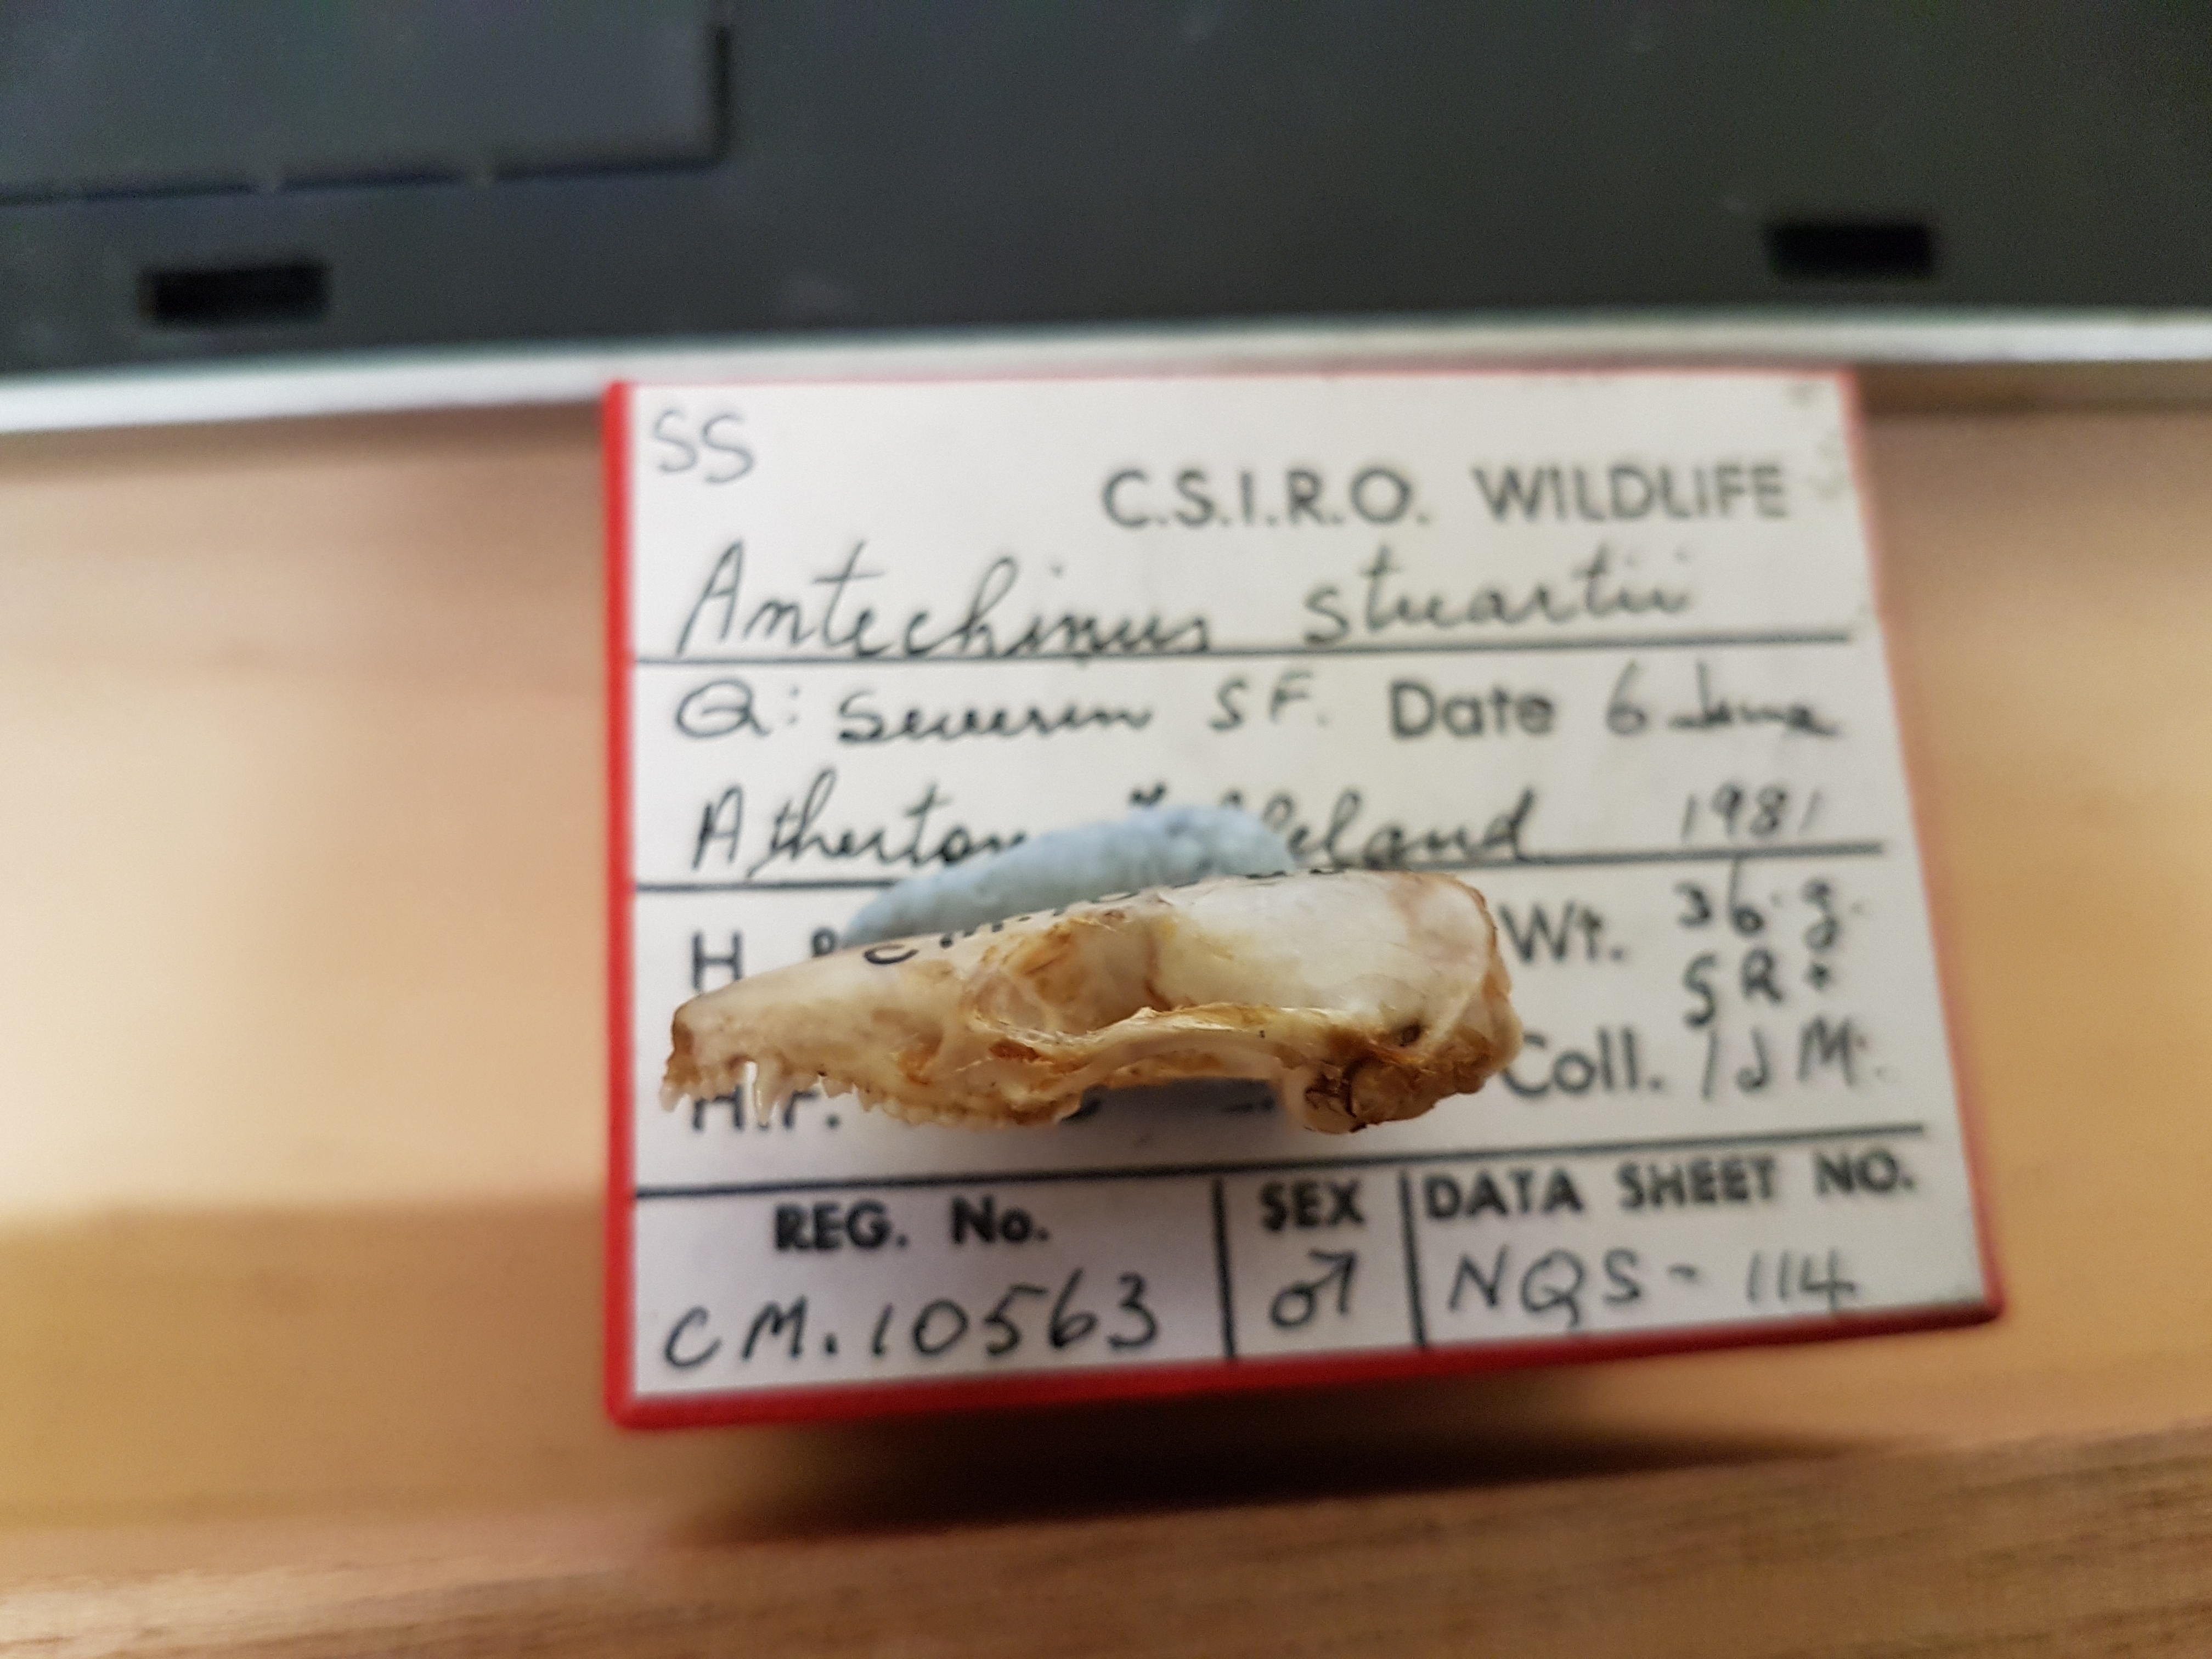 SS
C.S.I.R.O. WILDLIFE
Antechinus stuartii
Q: Severin SF. Date 6 June
Atherton 1981
H Wt. 36.g.
SR+
H.F. Coll. IJM.
REG. No. SEX DATA SHEET NO.
CM.10563 ♂ NQS-114